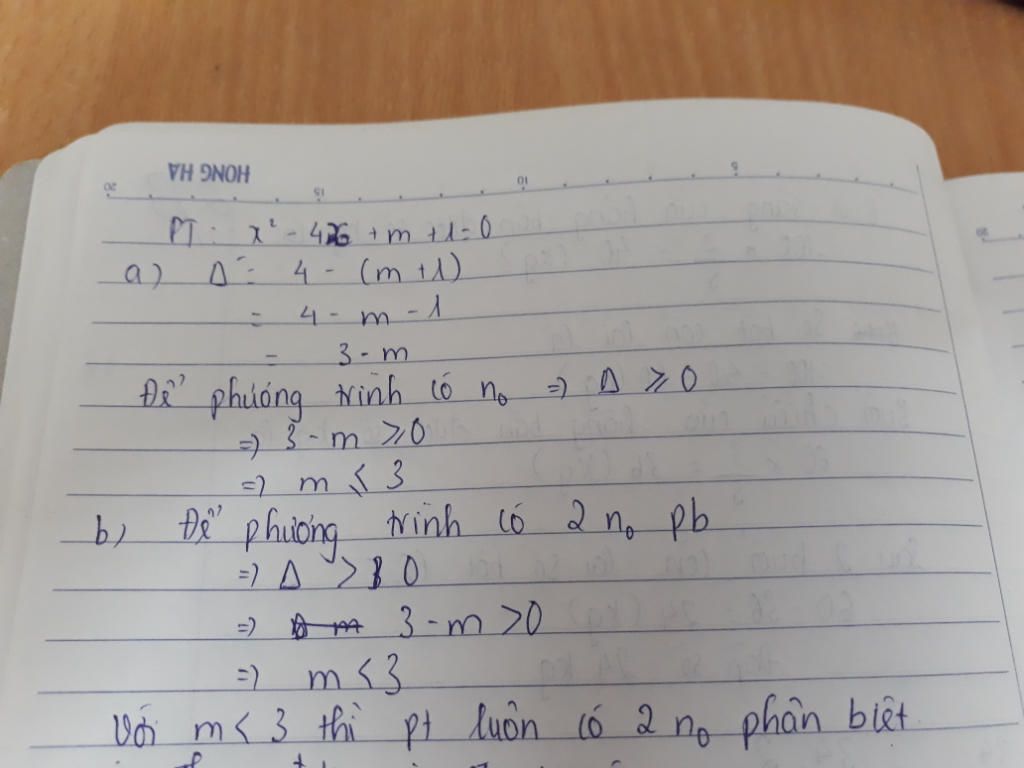 HONG HA
20 15 10 5
PT: x² - 4x + m + 1 = 0
a) Δ' = 4 - (m + 1)
= 4 - m - 1
= 3 - m
Để phương trình có n₀ => Δ ≥ 0
=> 3 - m ≥ 0
=> m ≤ 3
b) Để phương trình có 2 n₀ pb
=> Δ > 0
=> 3 - m > 0
=> m < 3
Với m < 3 thì pt luôn có 2 n₀ phân biệt